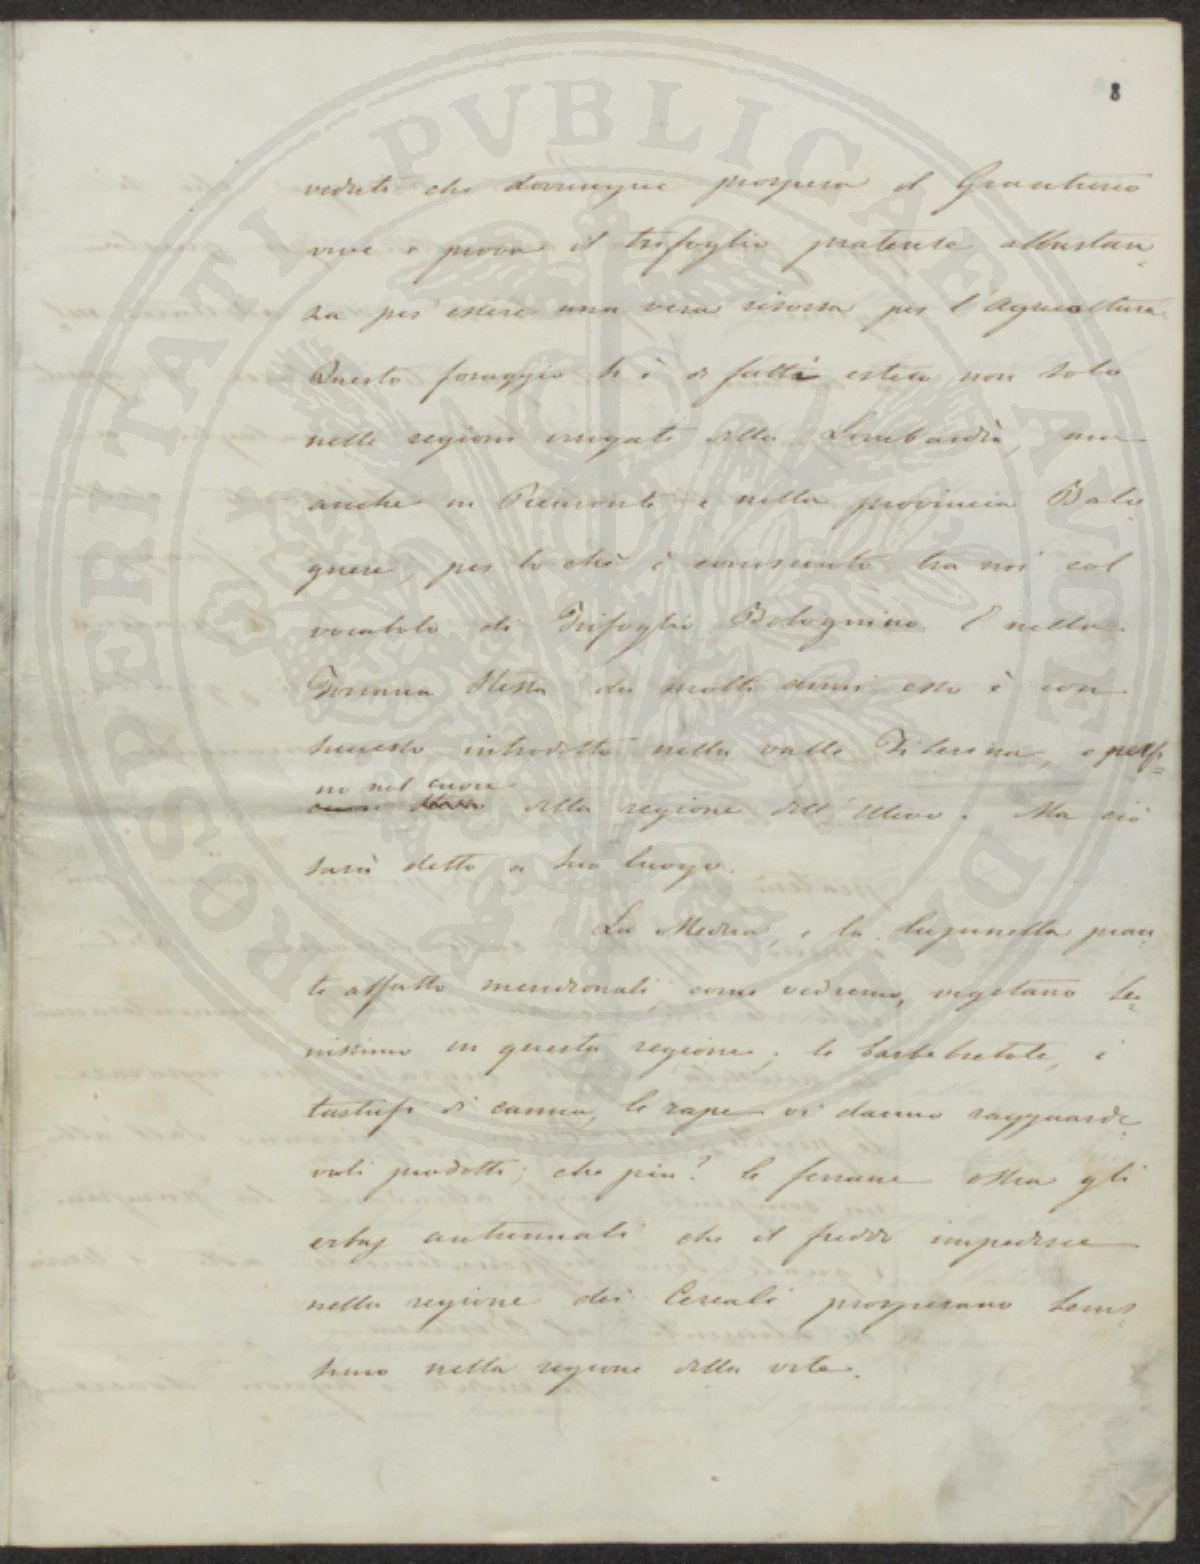 8
veduto che dovunque prospera il Granturco
vive e prova il trifoglio pratense abbastan-
za per essere una vera risorsa per l'Agricoltura.
Questo foraggio si è di fatti esteso non solo
nelle regioni irrigate della Lombardia, ma
anche in Piemonte e nella provincia Bolo-
gnese, per lo chè è conosciuto tra noi col
vocabolo di Trifoglio Bolognino. E nella
Toscana stessa da molti anni esso è con
successo introdotto nella valle Tiberina, e perfi-
no nel cuore
della regione dell'Ulivo. Ma ciò
sarà detto a suo luogo.
La Medica, e la lupinella pian-
te affatto meridionali, come vedremo, vegetano be-
nissimo in questa regione; le barbebietole, i
tartufi di canna, le rape vi danno ragguarde-
voli prodotti; che più? le ferrane ossia gli
erbaj autunnali che il freddo impedisce
nella regione dei Cereali prosperano benis-
simo nella regione della vite.
PROSPERITATI PVBLICAE AVGENDAE